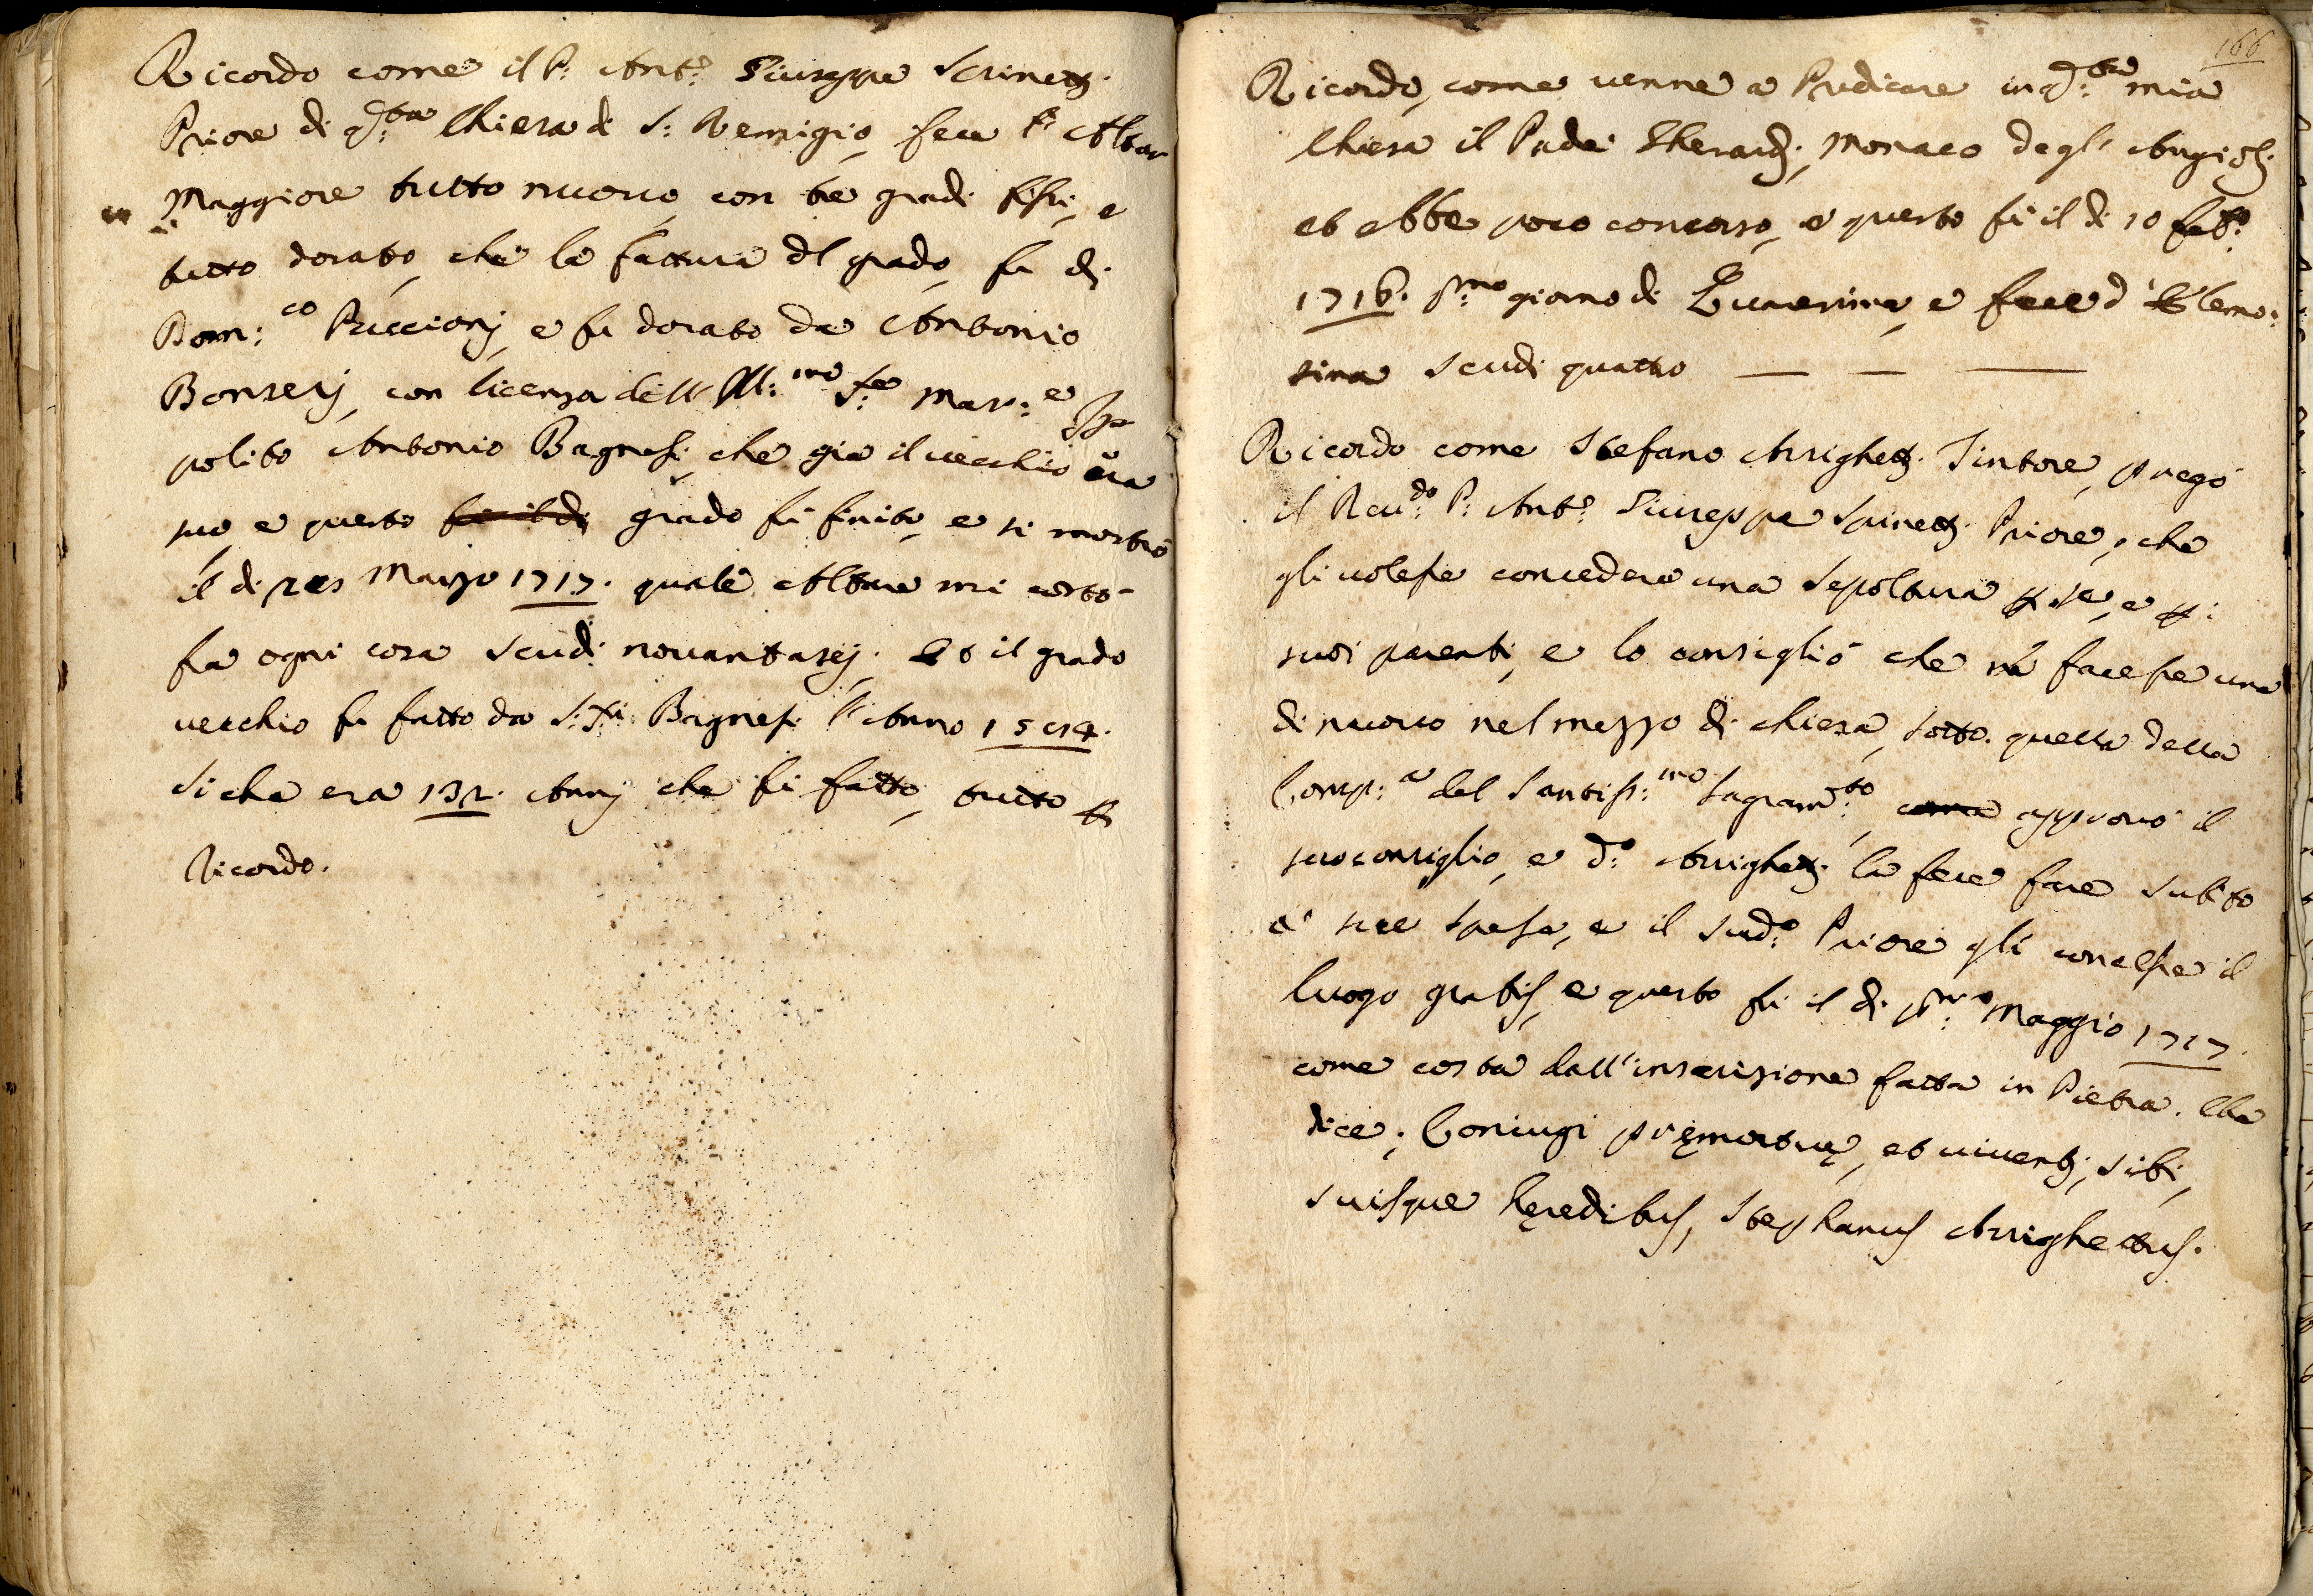 Ricordo come il P: Ant:o Giuseppe Spinetti
Priore di q:sta Chiera di S: Remigio, fece l' Altar
Maggiore tutto nuouo, con tre gradi fissi, e
tutto dorato, che la fattura del grado, fu di
Dom:co Puccionj, e fu dorato da Antonio
Bonserj, con licenza dell' Ill:mo S:re Mar:e Ip
polito Antonio Bagnesi, che gia il uecchio era
suo, e questo fu il di grado fu finito, e si mostrò
il di Marzo 1717. quale Altare mi costò
fra ogni cosa Scudi nouantasej. Et il grado
uecchio fu fatto da S:ri Bagnesi l' Anno
Si che era 132. Annj che fu fatto, tutto p
Ricordo.
166
Ricordo, come uenne a Predicare in q:sta mia
Chiesa il Padre Gherardi, Monaco degl' Angioli
et ebbe poco concorso, e questo fu il di 10 feb:o
1716. p:mo giorno di Quaresima, e fece d' Elemo:
sina Scudi quattro — — —
Ricordo come Stefano Arrighetti Tintore, pregò
il Reu:do P: Ant:o Giuseppe Spinetti Priore, che
gli uolesse concedere una Sepoltura p se, e p:
suoi parenti, e lo consigliò che ne facesse una
di nuouo nel mezzo di chiesa, sotto quella della
Comp:a del Santiss:mo Sagram:to, come approuò il
suo consiglio, e d:o Arrighetti la fece fare Subito
a' sue Spese, e il Sud:o Priore gli concesse il
luogo gratis, e questo fu il di p:mo Maggio 1717.
come costa dall' inscrizione fatta in Pietra. Che
dice; Coniugi pręmortuę, et uiuenti, sibi,
suisque hęredibus, Stephanus Arrighettus.